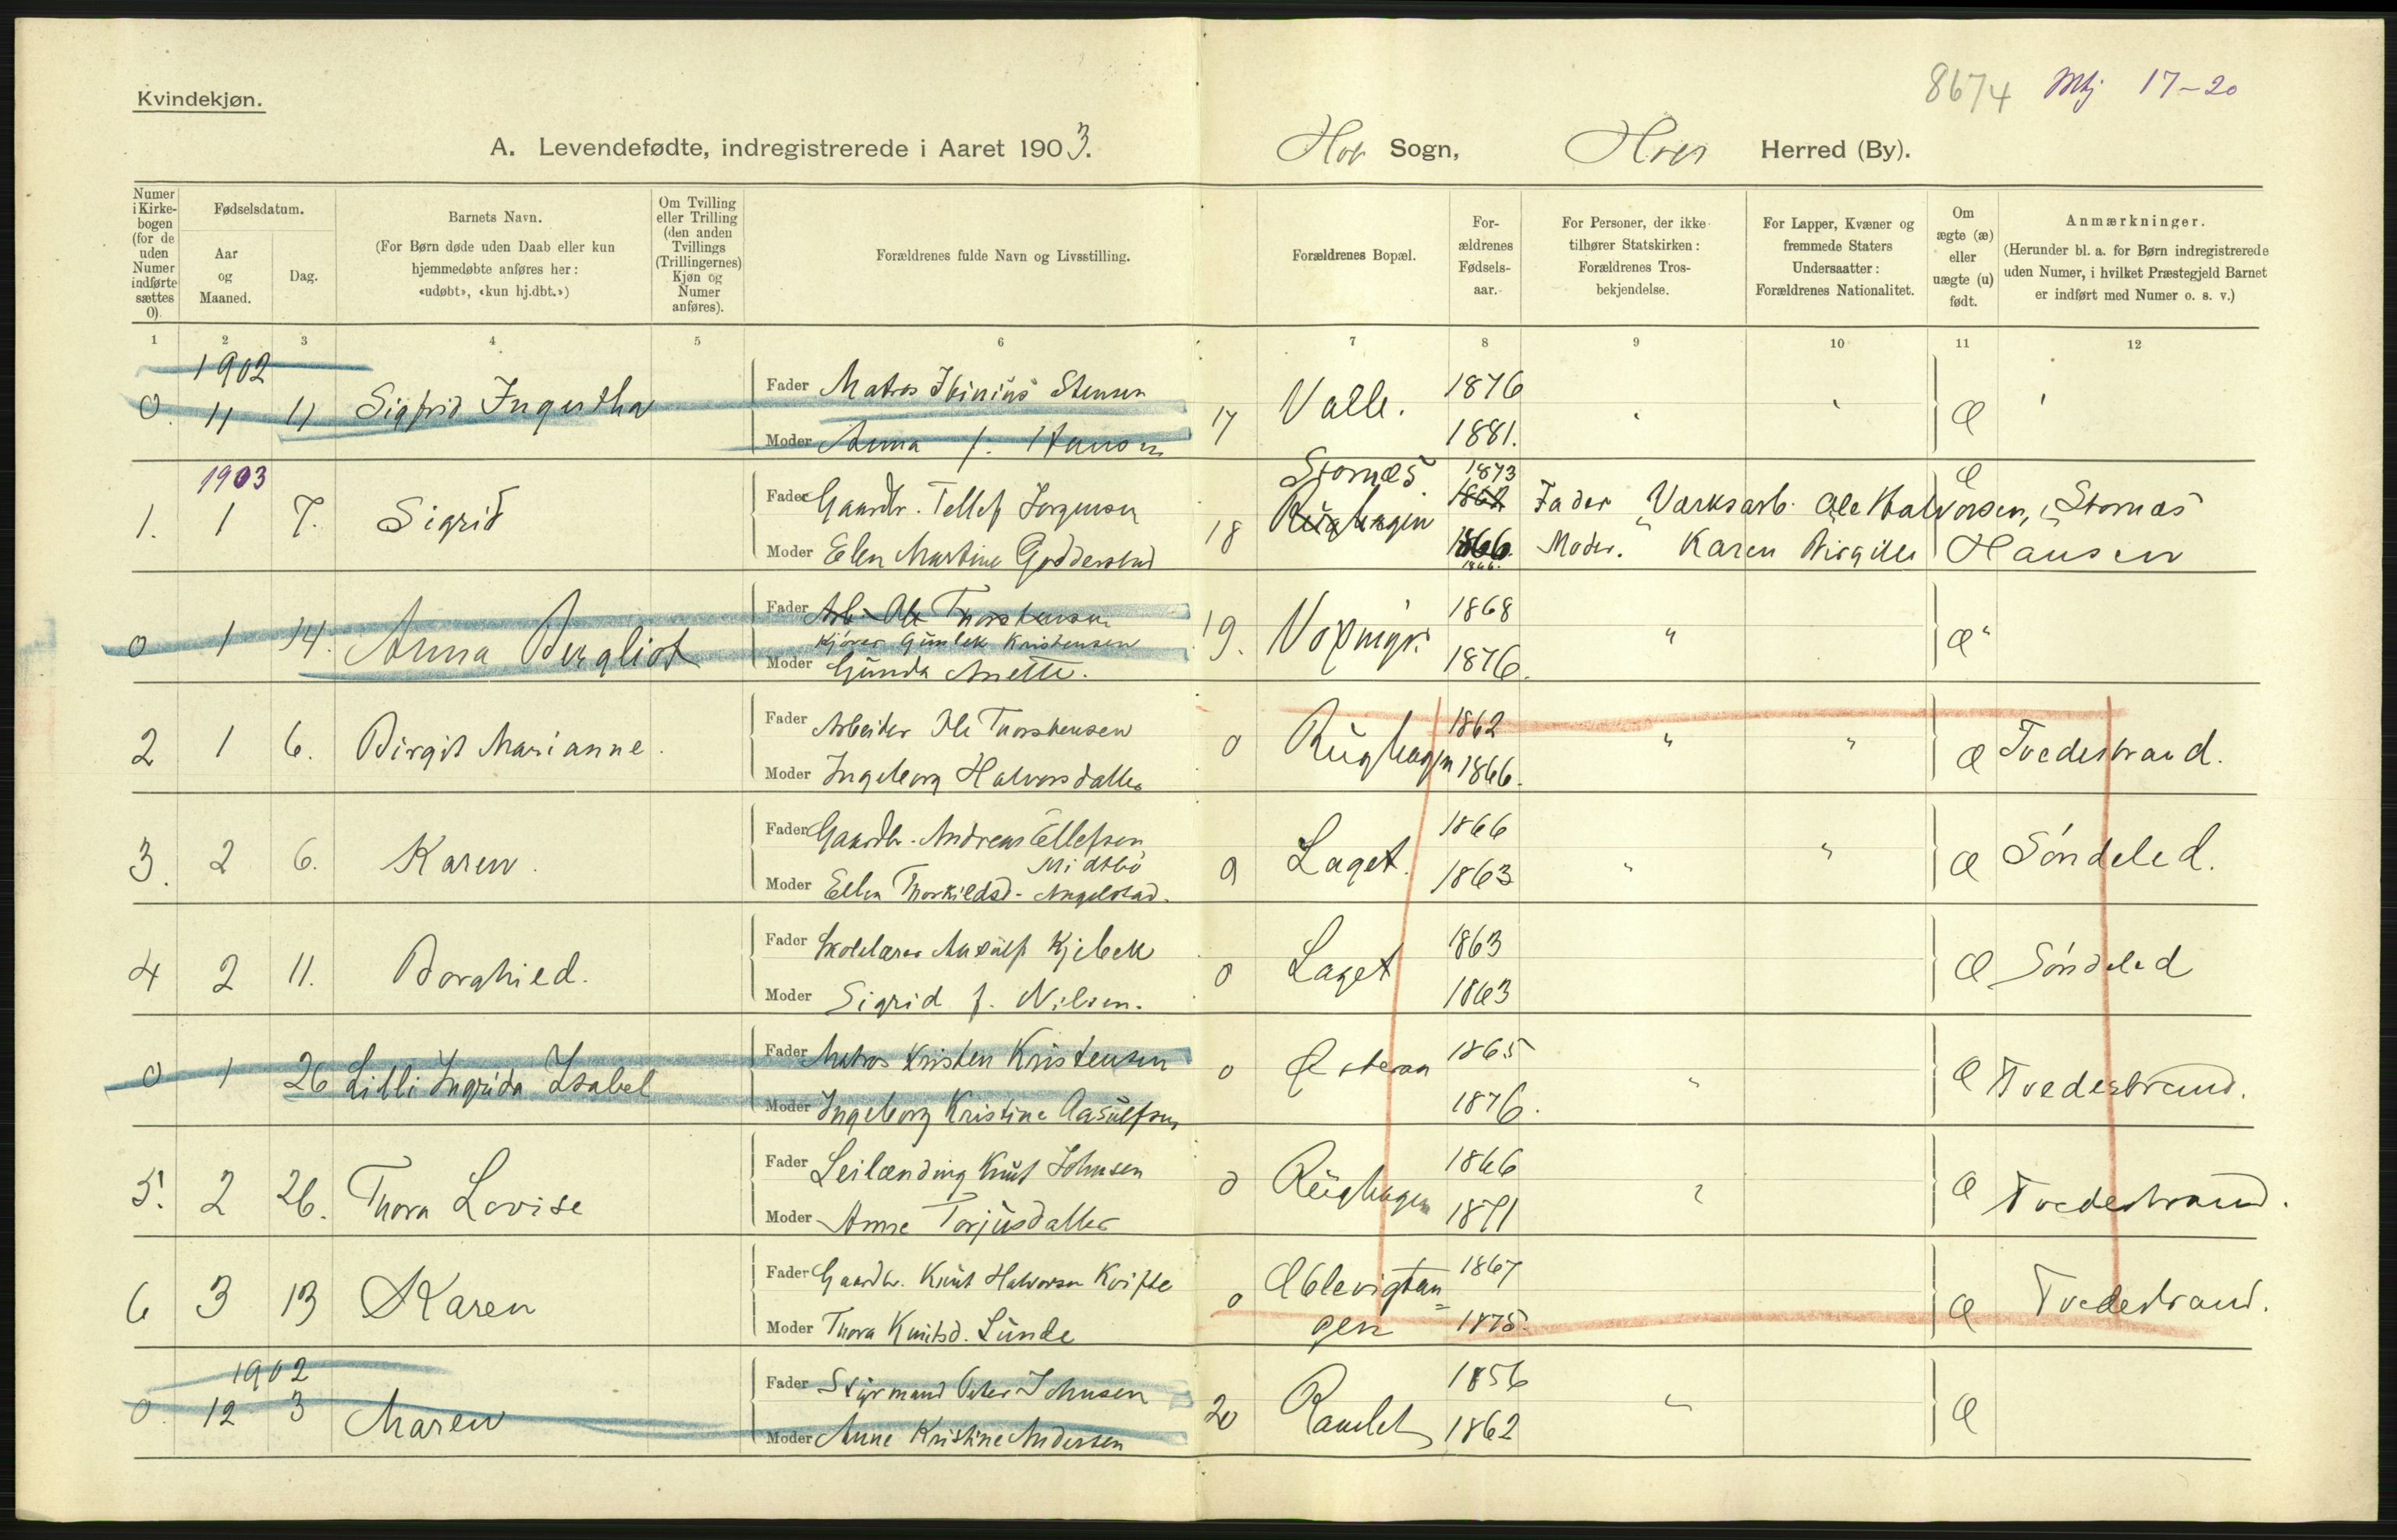 Kvindekjøn.
8674 Mkj 17-20
A. Levendefødte, indregistrerede i Aaret 1903. Holt Sogn, Holt Herred (By).
Numer i Kirkebogen (for de uden Numer indførte sættes 0).
Fødselsdatum.
Aar og Maaned.
Dag.
Barnets Navn.
(For Børn døde uden Daab eller kun hjemmedøbte anføres her: «udøbt», «kun hj.dbt.»)
Om Tvilling eller Trilling (den anden Tvillings (Trillingernes) Kjøn og Numer anføres).
Forældrenes fulde Navn og Livsstilling.
Forældrenes Bopæl.
For-ældrenes Fødsels-aar.
For Personer, der ikke tilhører Statskirken: Forældrenes Tros-bekjendelse.
For Lapper, Kvæner og fremmede Staters Undersaatter: Forældrenes Nationalitet.
Om ægte (æ) eller uægte (u) født.
Anmærkninger.
(Herunder bl. a. for Børn indregistrerede uden Numer, i hvilket Præstegjeld Barnet er indført med Numer o. s. v.)
1 2 3 4 5 6 7 8 9 10 11 12
1902
Fader Matros Stensen 1876
0. 11 11 Sigfrid 17 Valle. æ
Moder Anna f. Hanson 1881.
1903
Stornæs 1873 æ
Fader Gaardbr. Tellef Jørgensen 1862 Fader Værksarb. Ole Halvorsen, Stornæs
1. 1 7. Sigrid 18 Rughagen
Moder Elen Martine 1866. Moder. Karen Birgitte Hansen
1866.
Fader Arb. Ole Thorstensen 1868
0 1 14. Anna Bergliot Kjører Gunlek Kristensen 19. æ "
Moder Gunda Anette. 1876.
Fader Arbeider Ole Thorstensen 1862
2 1 6. Birgit Marianne. 0 Rughagen " " æ Tvedestrand.
Moder Ingeborg Halvorsdatter 1866.
Fader Gaardbr. Andreas Ellefsen 1866
3. 2 6. Karen. Midtbö 0 Laget. " " æ Söndeled.
Moder Ellen Thorkildsd. Angelstad. 1863
Fader Skolelærer Kjebek 1863
4 2 11. Borghild. 0 Laget æ Söndeled
Moder Sigrid f. Nilsen. 1863
Fader Matros Kristen Kristensen 1865
0 1 26 Lilli Ingrida Isabel 0 " æ Tvedestrand.
Moder Ingeborg Kristine Aasulfsen 1876.
Fader Leilænding Knut Johnsen 1866
5. 2 26. Thora Lovise 0 Rughagen " æ Tvedestrand.
Moder Anne Torjusdatter 1871
Fader Gaardbr. Knut Halvorsen Kvifte 1867
6 3 13 Karen 0 Ablevigtan= æ Tvedestrand.
Moder Thora Knutsd. Lunde gen 1875.
1902
Fader Styrmand Peter Johnsen 1856
0. 12 3 Maren 20 Ramlet " æ
Moder Anne Kristine Andersen 1862